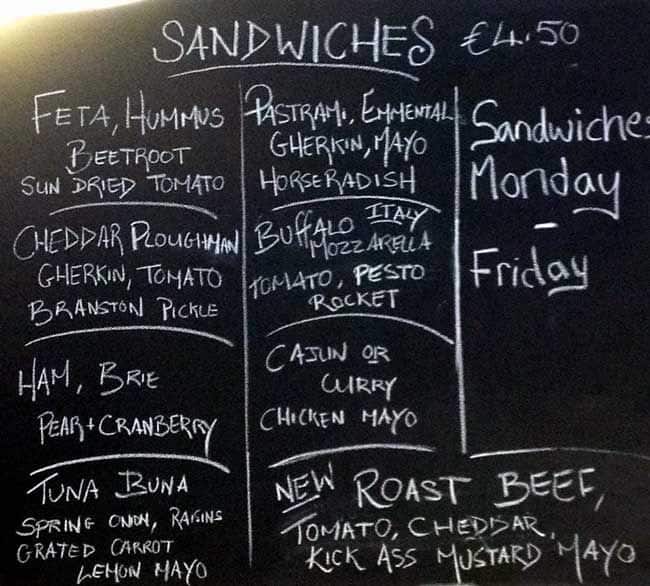 SANDWICHES €4.50
FETA, HUMMUS
BEETROOT
SUN DRIED TOMATO
CHEDDAR PLOUGHMAN
GHERKIN, TOMATO
BRANSTON PICKLE
HAM, BRIE
PEAR + CRANBERRY
TUNA BUNA
SPRING ONION, RAISINS
GRATED CARROT
LEMON MAYO
PASTRAMI, EMMENTAL
GHERKIN, MAYO
HORSERADISH
BUFFALO ITALY
MOZZARELLA
TOMATO, PESTO
ROCKET
CAJUN OR
CURRY
CHICKEN MAYO
NEW ROAST BEEF,
TOMATO, CHEDDAR,
KICK ASS MUSTARD MAYO
Sandwiches
Monday
-
Friday